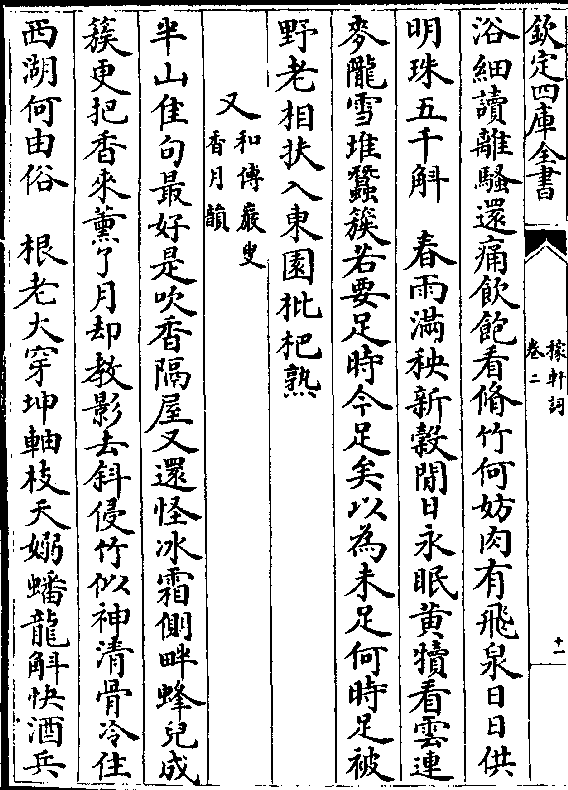 欽定四庫全書
稼軒詞
卷二
十一
浴細讀離騷還痛飲飽看脩竹何妨肉有飛泉日日供
明珠五千斛　春雨滿秧新穀閒日永眠黄犢看雲連
麥隴雪堆蠶簇若要足時今足矣以為未足何時足被
野老相扶入東園枇杷熟
又和傅巖叟
香月韻
半山佳句最好是吹香隔屋又還怪冰霜側畔蜂兒成
簇更把香來薰了月却教影去斜侵竹似神清骨冷住
西湖何由俗　根老大穿坤軸枝夭嫋蟠龍斛快酒兵